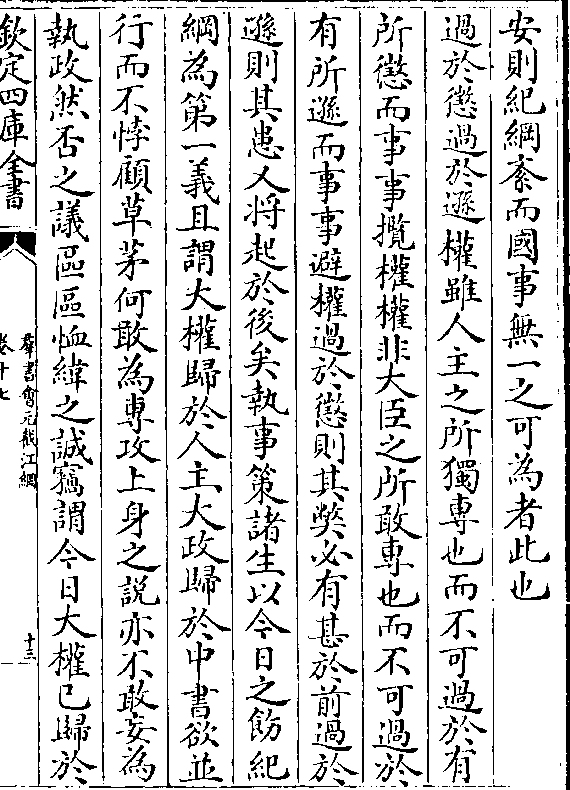 安則紀綱紊而國事無一之可為者此也
過於懲過於遜權雖人主之所獨專也而不可過於有
所懲而事事攬權權非大臣之所敢專也而不可過於
有所遜而事事避權過於懲則其弊必有甚於前過於
遜則其患又將起於後矣執事策諸生以今日之飭紀
綱為第一義且謂大權歸於人主大政歸於中書欲並
行而不悖顧草茅何敢為專攻上身之説亦不敢妄為
執政然否之議區區恤緯之誠竊謂今日大權已歸於
欽定四庫全書
羣書會元截江網
卷十七
十三